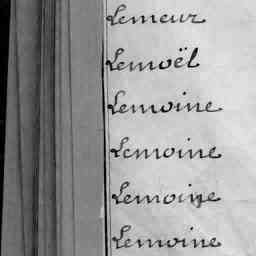 Lemeur
Lemoël
Lemoine
Lemoine
Lemoine
Lemoine